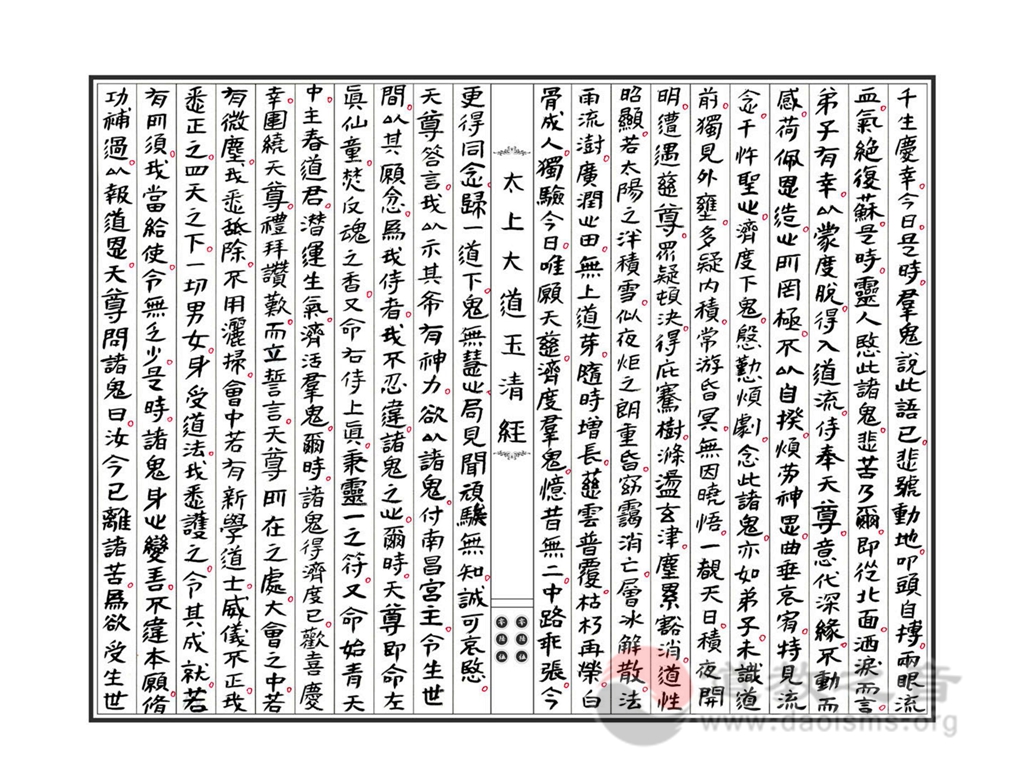 千生慶幸今日是時羣鬼說此語已悲號動地叩頭自摶兩眼流
血氣絶復蘇是時靈人愍此諸鬼悲苦乃爾即從北面洒淚而言
弟子有幸以蒙度脫得入道流侍奉天尊意代深緣不動而
感荷佩恩造之所罔極不以自揆煩劳神恩曲垂哀宥特見流
念干忤聖之濟度下鬼慇懃煩劇念此諸鬼亦如弟子未識道
前獨見外壅多疑内積常游昏冥無因曉悟一覩天日積夜開
明遭遇慈尊眾疑頓決得庇騫樹滌盪玄津塵累豁消道性
昭顯若太陽之泮積雪似夜炬之朗重昏窈靄消亡層冰解散法
雨流澍廣潤之田無上道芽隨時增長慈雲普覆枯朽再榮白
骨成人獨驗今日唯願天慈濟度羣鬼憶昔無二中路乖張今
太上大道玉清經
零陸伍
零陸伍
更得同念歸一道下鬼無慧之局見聞頑騃無知誠可哀愍
天尊答言我以示其希有神力欲以諸鬼付南昌宮主令生世
間以其願念爲我侍者我不忍違諸鬼之之爾時天尊即命左
眞仙童焚反魂之香又命右侍上眞秉靈一之符又命始青天
中主春道君潛運生氣濟活羣鬼爾時諸鬼得濟度已歡喜慶
幸圍繞天尊禮拜讚歎而立誓言天尊所在之處大會之中若
有微塵我悉祛除不用灑掃會中若有新學道士威儀不正我
悉正之四天之下一切男女身受道法我悉護之令其成就若
有所須我當給使令無乏少是時諸鬼身之變吾不違本願脩
功補過以報道恩天尊問諸鬼曰汝今已離諸苦爲欲受生世
道教之音
www.daoisms.org